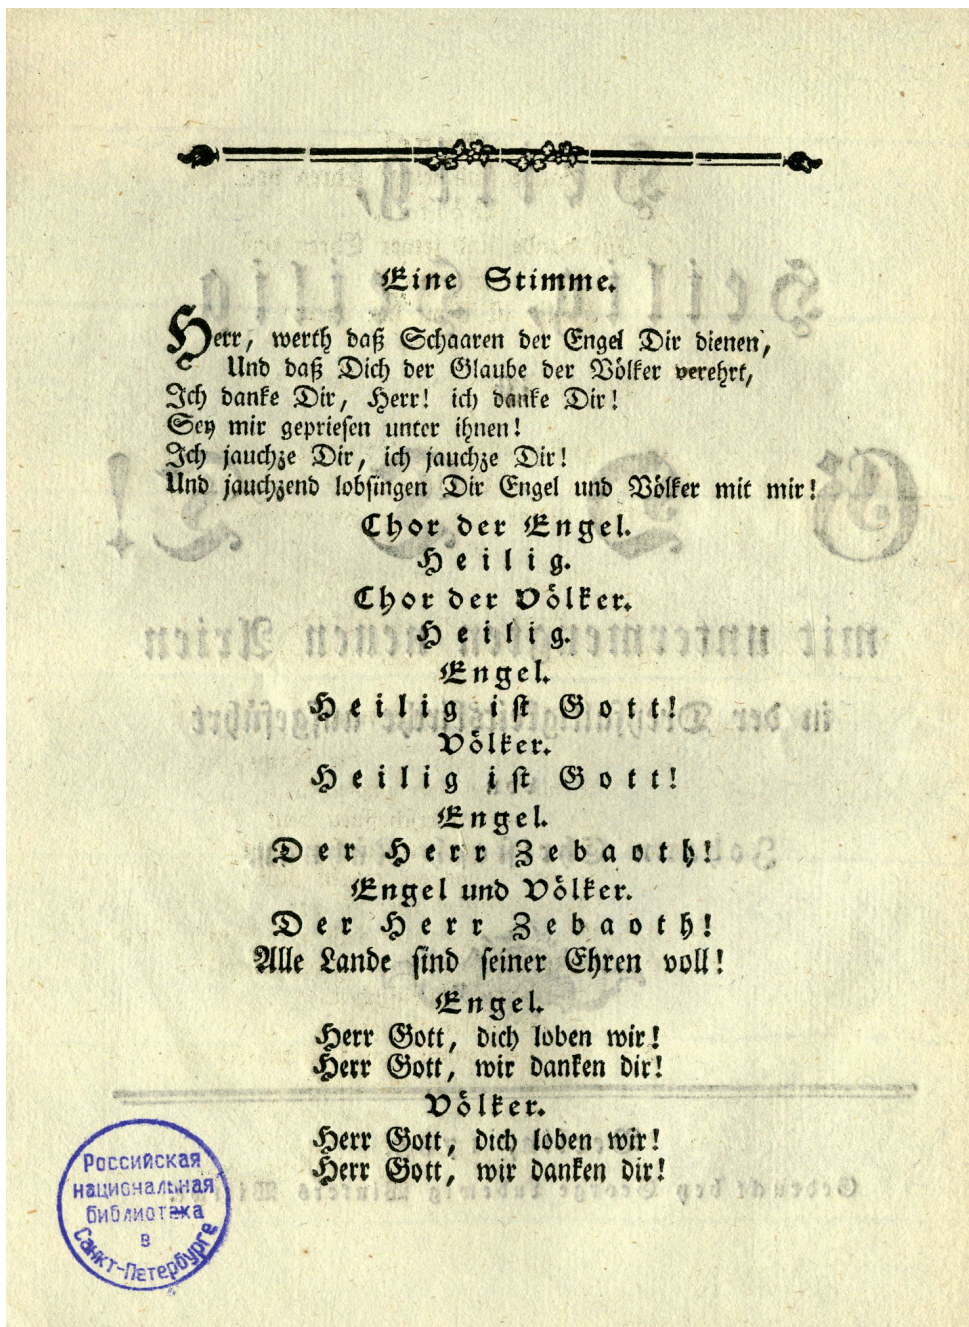 Eine Stimme.
Herr, werth daß Schaaren der Engel Dir dienen,
Und daß Dich der Glaube der Völker verehrt,
Ich danke Dir, Herr! ich danke Dir!
Sey mir gepriesen unter ihnen!
Ich jauchze Dir, ich jauchze Dir!
Und jauchzend lobsingen Dir Engel und Völker mit mir!
Chor der Engel.
Heilig.
Chor der Völker.
Heilig.
Engel.
Heilig ist Gott!
Völker.
Heilig ist Gott!
Engel.
Der Herr Zebaoth!
Engel und Völker.
Der Herr Zebaoth!
Alle Lande sind seiner Ehren voll!
Engel.
Herr Gott, dich loben wir!
Herr Gott, wir danken dir!
Völker.
Herr Gott, dich loben wir!
Herr Gott, wir danken dir!
Российская
национальная
библиотека
в
Санкт-Петербурге